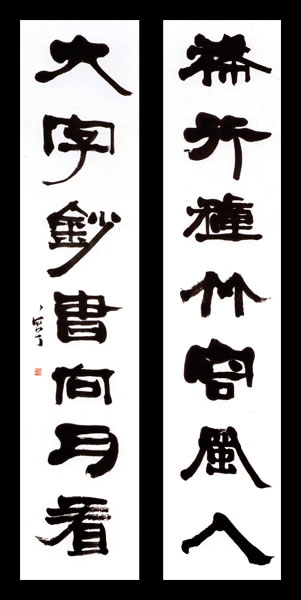 疏行種竹容風入
大字鈔書向月看